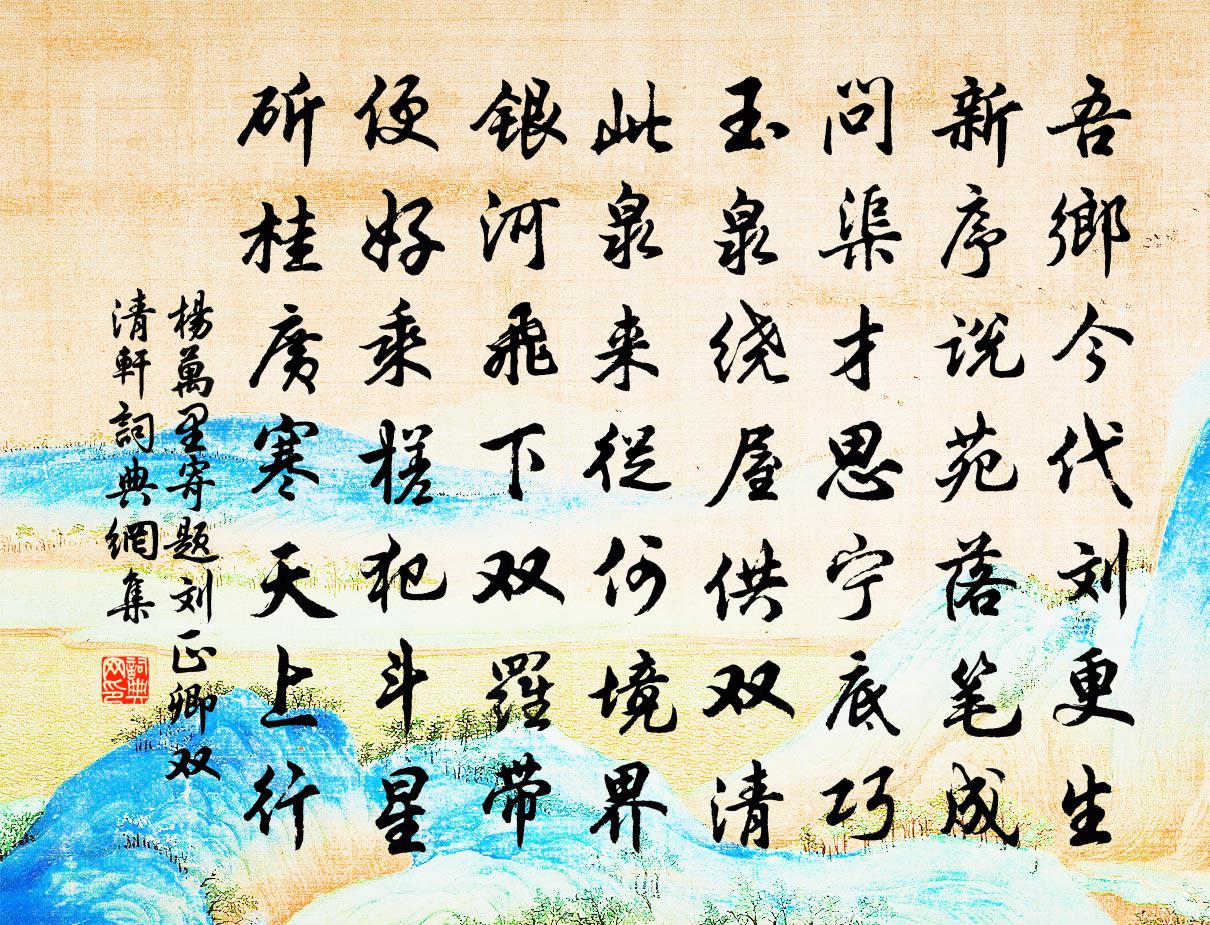 吾鄉今代刘更生
新序说苑落笔成
问渠才思宁底巧
玉泉绕屋供双清
此泉来從何境界
银河飛下双羅带
便好乘槎犯斗星
斫桂廣寒天上行
楊萬里寄题刘正卿双
清軒詞典網集
詞典网印